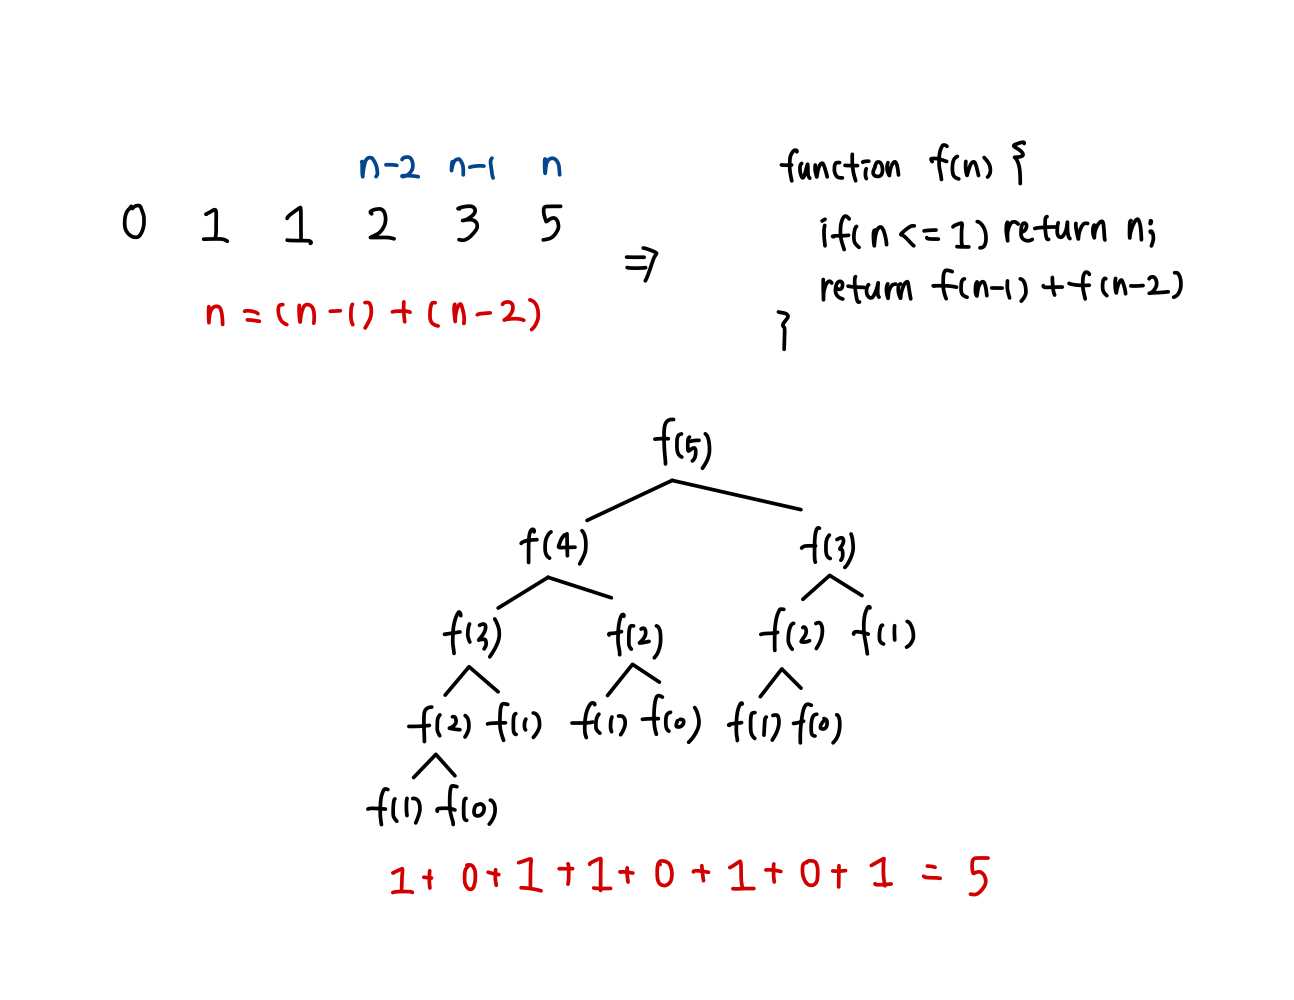 n-2 n-1 n
0 1 1 2 3 5
n = (n-1) + (n-2)
⇒
function f(n) {
if(n <= 1) return n;
return f(n-1) + f(n-2)
}
f(5)
f(4) f(3)
f(3) f(2) f(2) f(1)
f(2) f(1) f(1) f(0) f(1) f(0)
f(1) f(0)
1 + 0 + 1 + 1 + 0 + 1 + 0 + 1 = 5